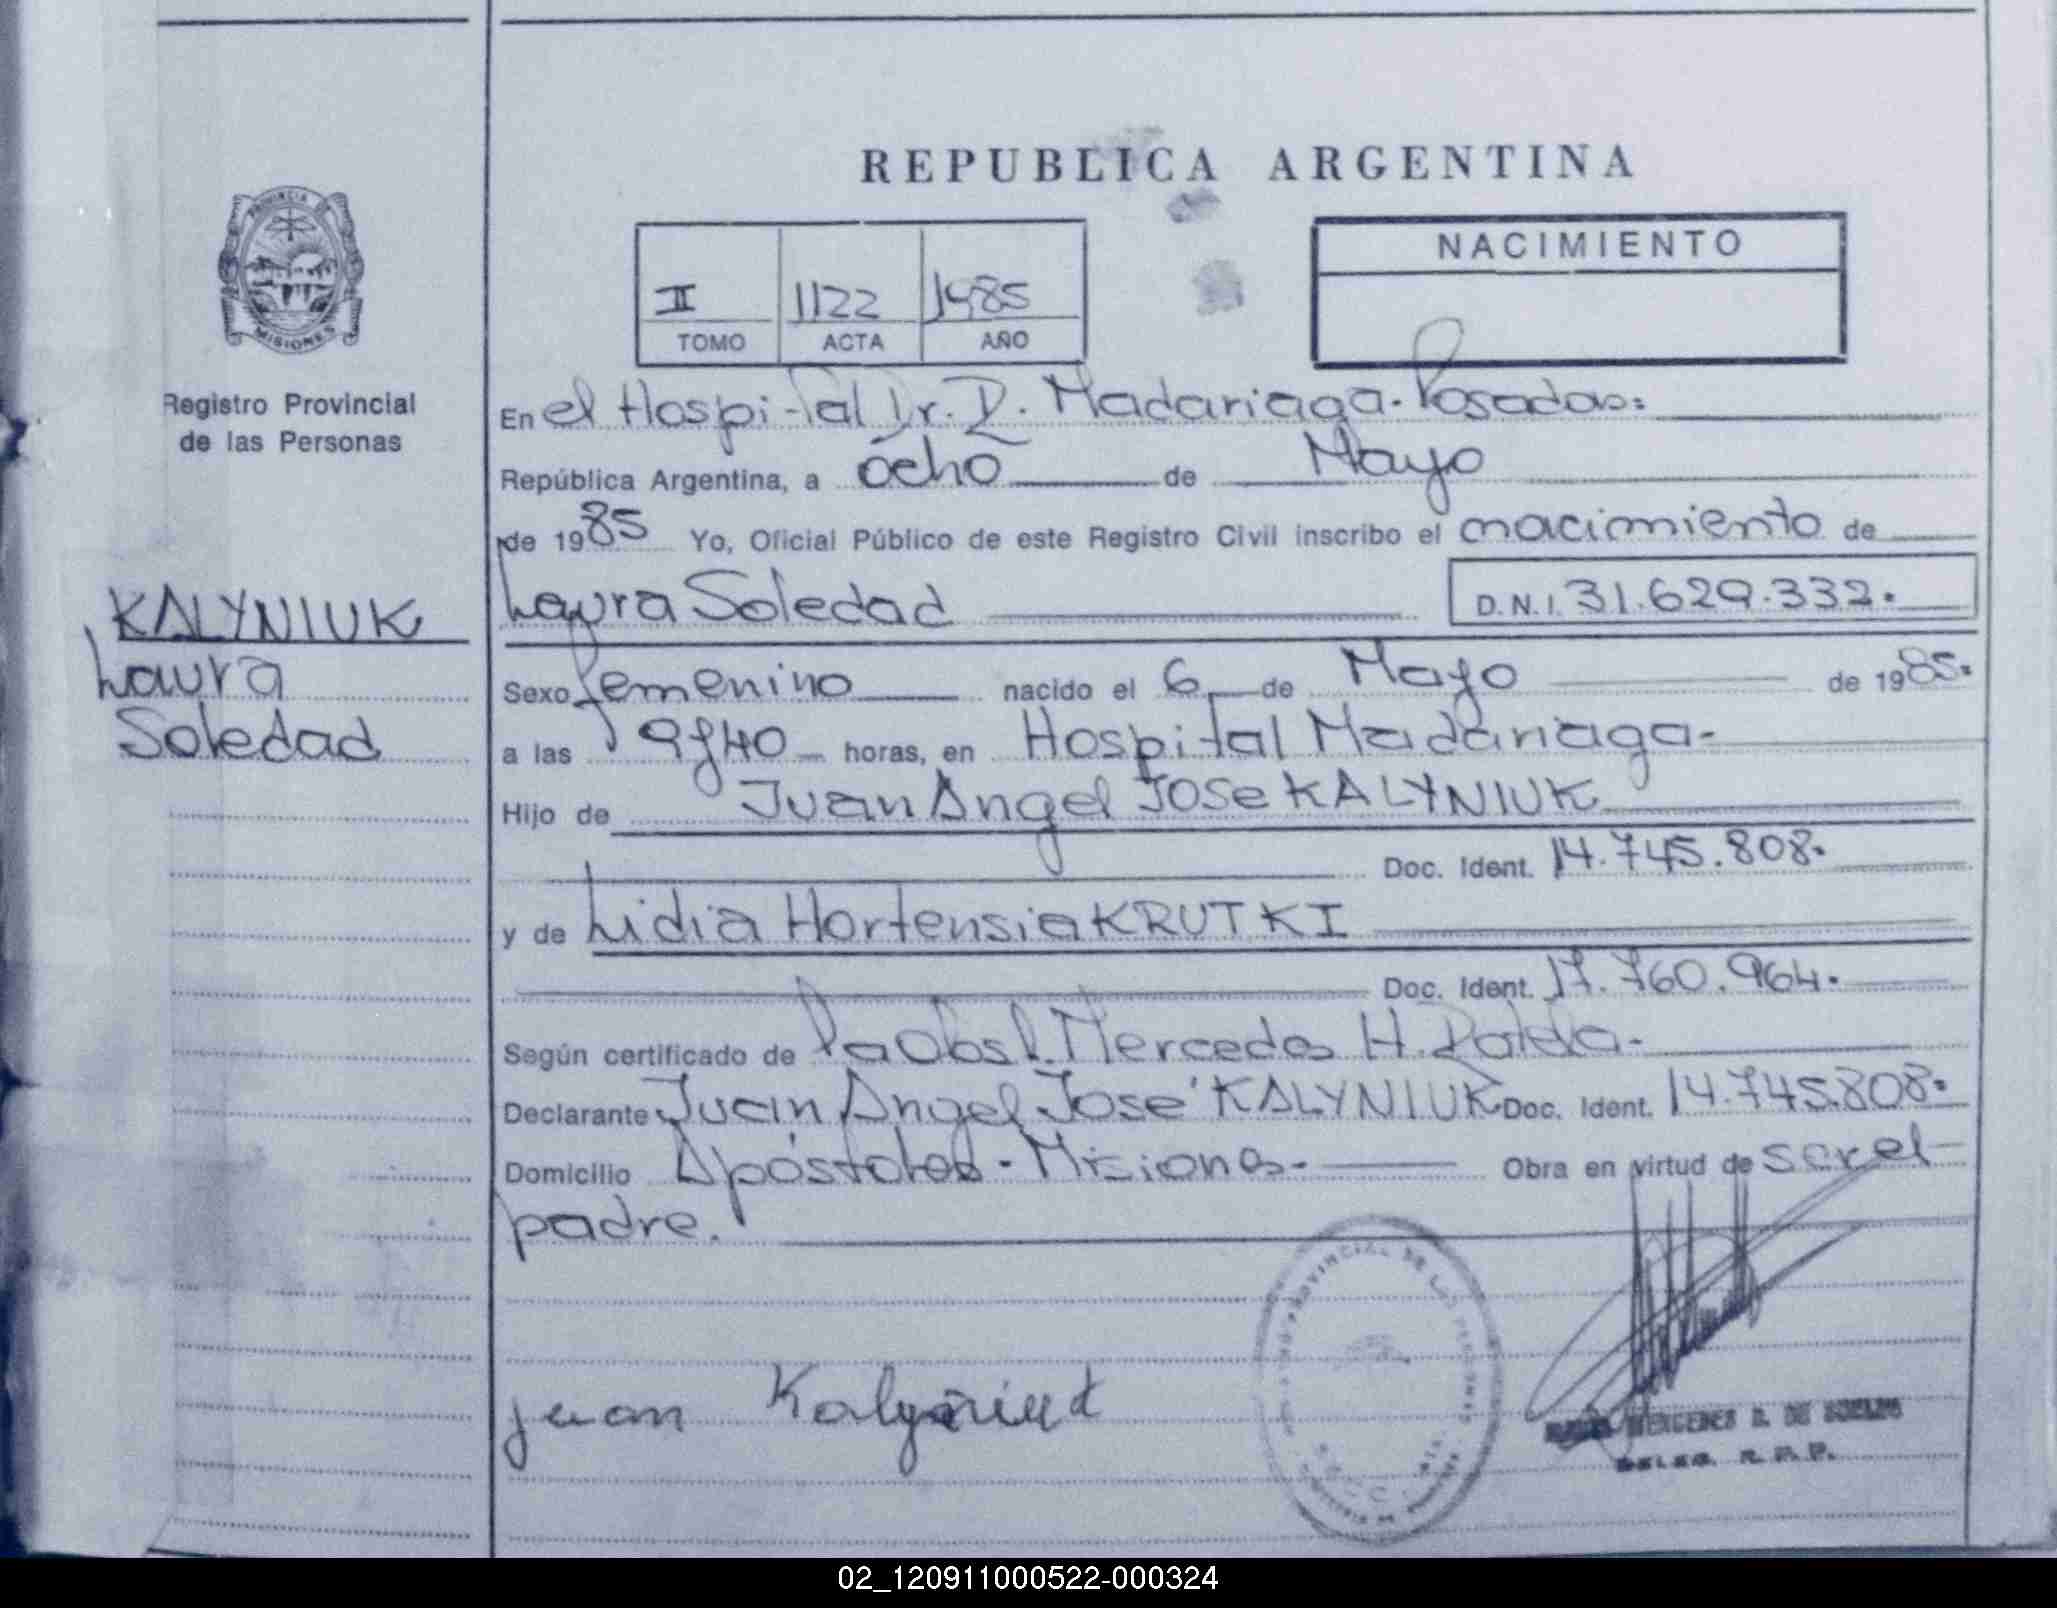 REPUBLICA ARGENTINA
PROVINCIA DE
MISIONES
Registro Provincial
de las Personas
II 1122 1985
TOMO ACTA AÑO
NACIMIENTO
En el Hospital Dr. R. Madariaga - Posadas:
República Argentina, a ocho de Mayo
de 1985 Yo, Oficial Público de este Registro Civil inscribo el nacimiento de
Laura Soledad D.N.I. 31.629.332.
KALYNIUK
Laura
Soledad
Sexo femenino nacido el 6 de Mayo de 1985.
a las 9y40 horas, en Hospital Madariaga-
Hijo de Juan Angel Jose KALYNIUK
Doc. Ident. 14.745.808.
y de Lidia Hortensia KRUTKI
Doc. Ident. 17.760.964.
Según certificado de la Obst. Mercedes H.
Declarante Juan Angel José KALYNIUK Doc. Ident. 14.745.808.
Domicilio Apóstoles - Misiones - Obra en virtud de ser el
padre.
PROVINCIAL DE LAS PERSONAS
Juan Kalyniuk
DELEG. R. P. P.
02_120911000522-000324